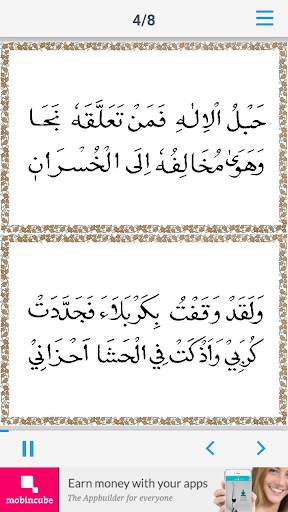 4/8
حَبْلُ الْاِلٰهِ فَمَنْ تَعَلَّقَهٗ نَجَا
وَهَوَىٰ مُخَالِفُهٗ اِلَى الْخُسْرَانِ
وَلَقَدْ وَقَفْتُ بِكَرْبَلَاءَ فَجَدَّدَتْ
كُرَبِيْ وَاَذْكَتْ فِي الْحَشَا اَحْزَانِيْ
mobincube
Earn money with your apps
The Appbuilder for everyone